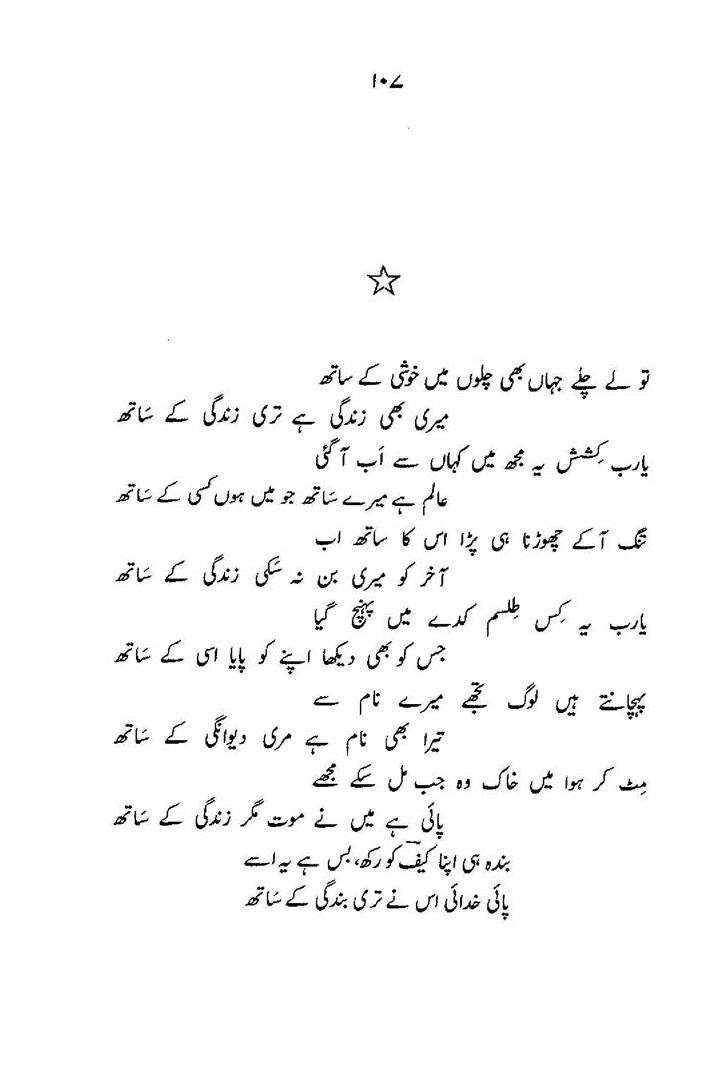 ۱۰۷
تو لے چلے جہاں بھی چلوں میں خوشی کے ساتھ
میری بھی زندگی ہے تری زندگی کے سَاتھ
یارب کِشش یہ مجھ میں کہاں سے اَب آ گئی
عالم ہے میرے سَاتھ جو میں ہوں کسی کے سَاتھ
تنگ آ کے چھوڑنا ہی پڑا اس کا ساتھ اب
آخر کو میری بن نہ سَکی زندگی کے سَاتھ
یارب یہ کِس طِلسم کدے میں پہنچ گیا
جس کو بھی دیکھا اپنے کو پایا اسی کے سَاتھ
پہچانتے ہیں لوگ تجھے میرے نام سے
تیرا بھی نام ہے مری دیوانگی کے سَاتھ
مِٹ کر ہوا میں خاک وہ جب مل سکے مجھے
پائی ہے میں نے موت مگر زندگی کے سَاتھ
بندہ ہی اپنا کیفؔ کو رکھ، بس ہے یہ اسے
پائی خدائی اس نے تری بندگی کے سَاتھ